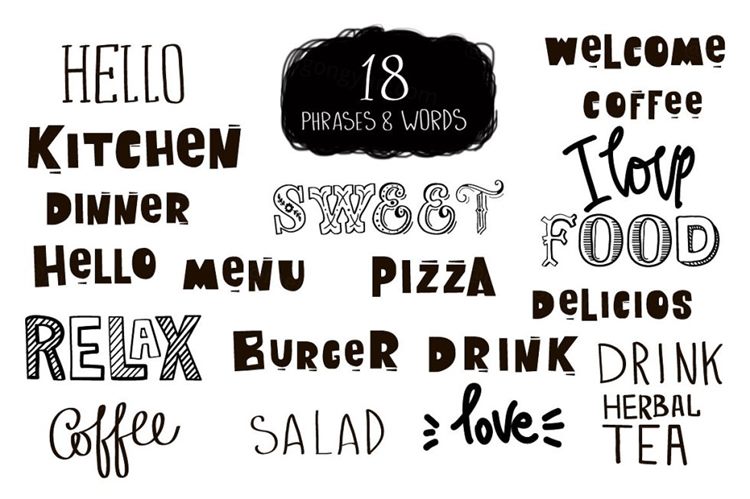 HELLO
18
PHRASES & WORDS
WELCOME
COFFEE
KITCHEN
I love
DINNER
SWEET
FOOD
Hello
MENU
PIZZA
DELICIOS
RELAX
BURGER
DRINK
DRINK
HERBAL
TEA
Coffee
SALAD
love